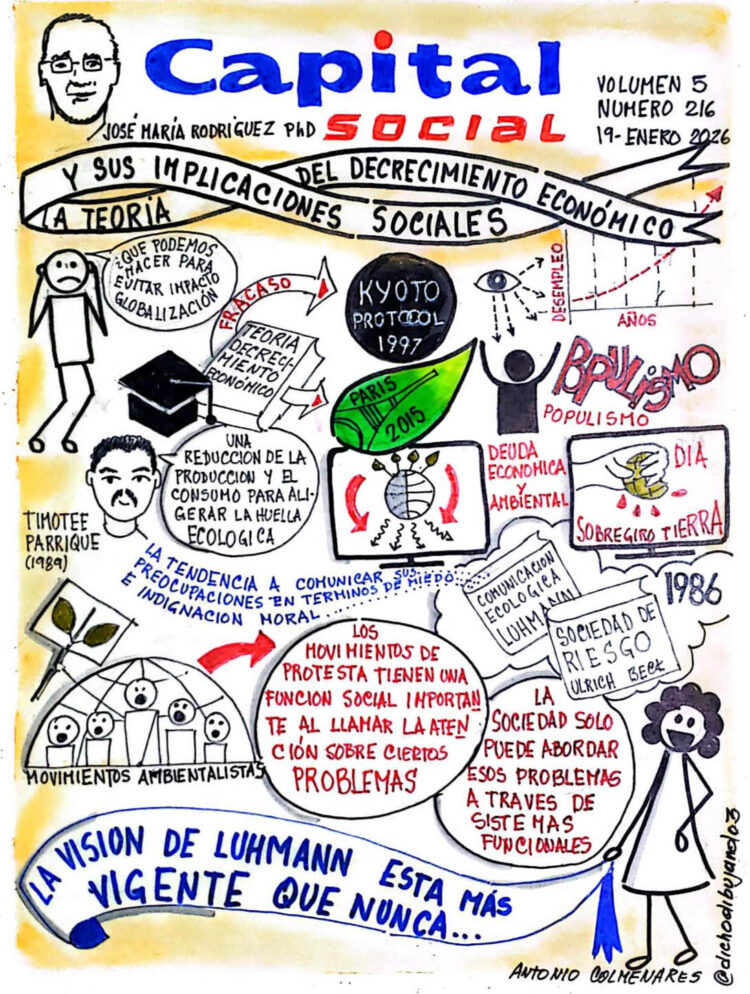 Capital
SOCIAL
JOSÉ MARÍA RODRIGUEZ PhD
VOLUMEN 5
NUMERO 216
19-ENERO 2026
LA TEORÍA
DEL DECRECIMIENTO ECONÓMICO
Y SUS IMPLICACIONES SOCIALES
¿QUE PODEMOS
HACER PARA
EVITAR IMPACTO
GLOBALIZACIÓN
FRACASO
KYOTO
PROTOCOOL
1997
DESEMPLEO
AÑOS
TEORIA
DECRECI-
MIENTO
ECONÓMICO
PARIS
2015
POPULISMO
POPULISMO
UNA
REDUCCION DE LA
PRODUCCION Y EL
CONSUMO PARA ALI-
GERAR LA HUELLA
ECOLOGICA
TIMOTEE
PARRIQUE
(1989)
DEUDA
ECONOMICA
Y
AMBIENTAL
DIA
SOBREGIRO TIERRA
LA TENDENCIA A COMUNICAR SUS
PREOCUPACIONES EN TERMINOS DE MIEDO
E INDIGNACION MORAL...........
COMUNICACION
ECOLOGICA
LUHMANN
1986
SOCIEDAD DE
RIESGO
ULRICH BECK
MOVIMIENTOS AMBIENTALISTAS
LOS
MOVIMIENTOS DE
PROTESTA TIENEN UNA
FUNCION SOCIAL IMPORTAN
TE AL LLAMAR LA ATEN
CIÓN SOBRE CIERTOS
PROBLEMAS
LA
SOCIEDAD SOLO
PUEDE ABORDAR
ESOS PROBLEMAS
A TRAVES DE
SISTEMAS
FUNCIONALES
LA VISION DE LUHMANN ESTA MÁS
VIGENTE QUE NUNCA...
ANTONIO COLMENARES
@dichodibujando3